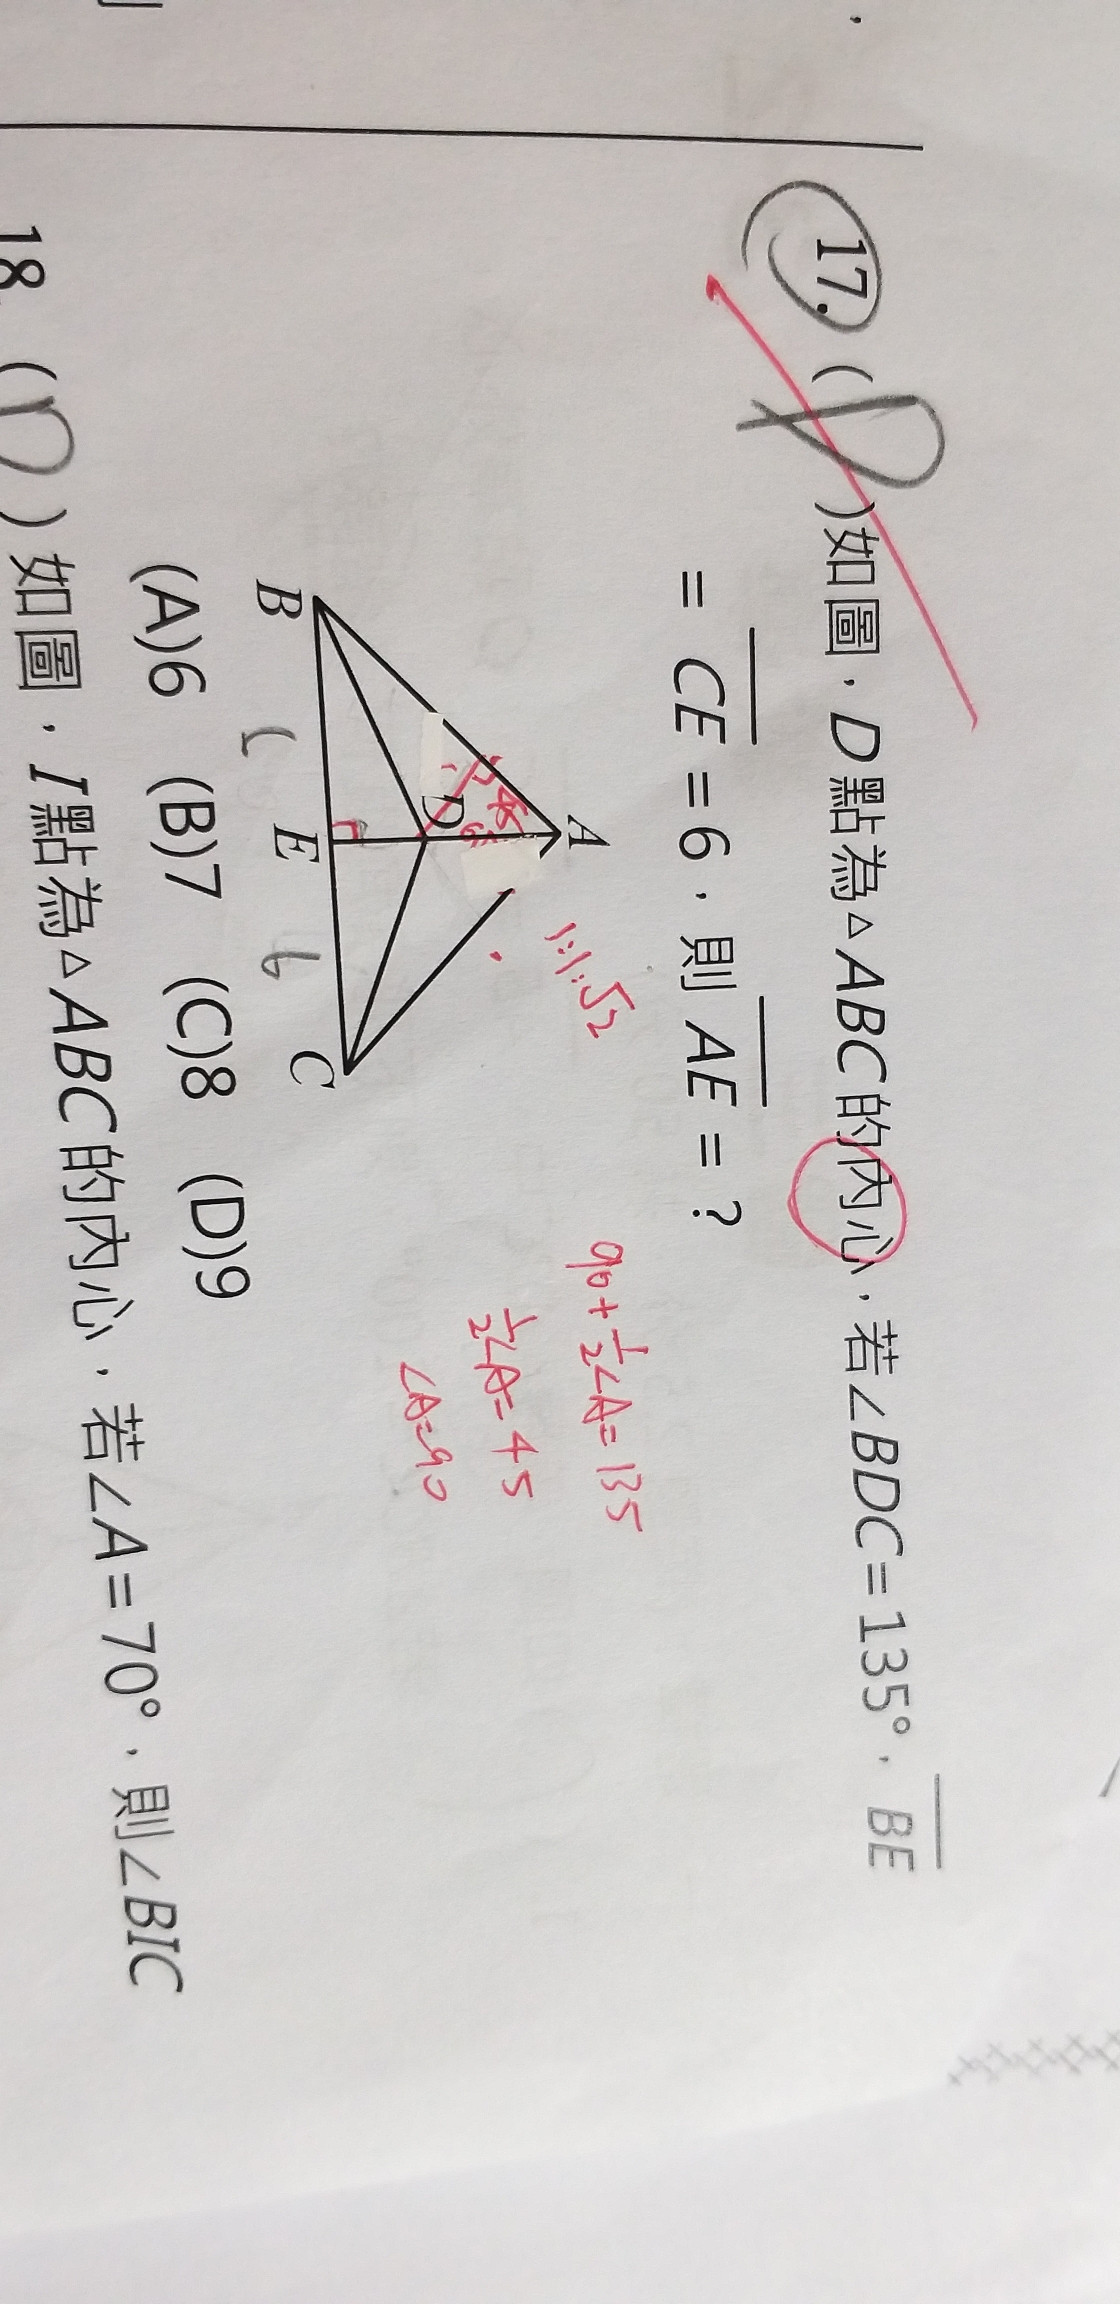 17. ( )如圖，D點為△ABC的內心，若∠BDC=135°，BE
= CE = 6，則 AE = ?
1:1:√2
90+½∠A=135
½∠A=45
∠A=90
A
45
D
B
E
C
6
(A)6 (B)7 (C)8 (D)9
18. (D)如圖，I點為△ABC的內心，若∠A=70°，則∠BIC